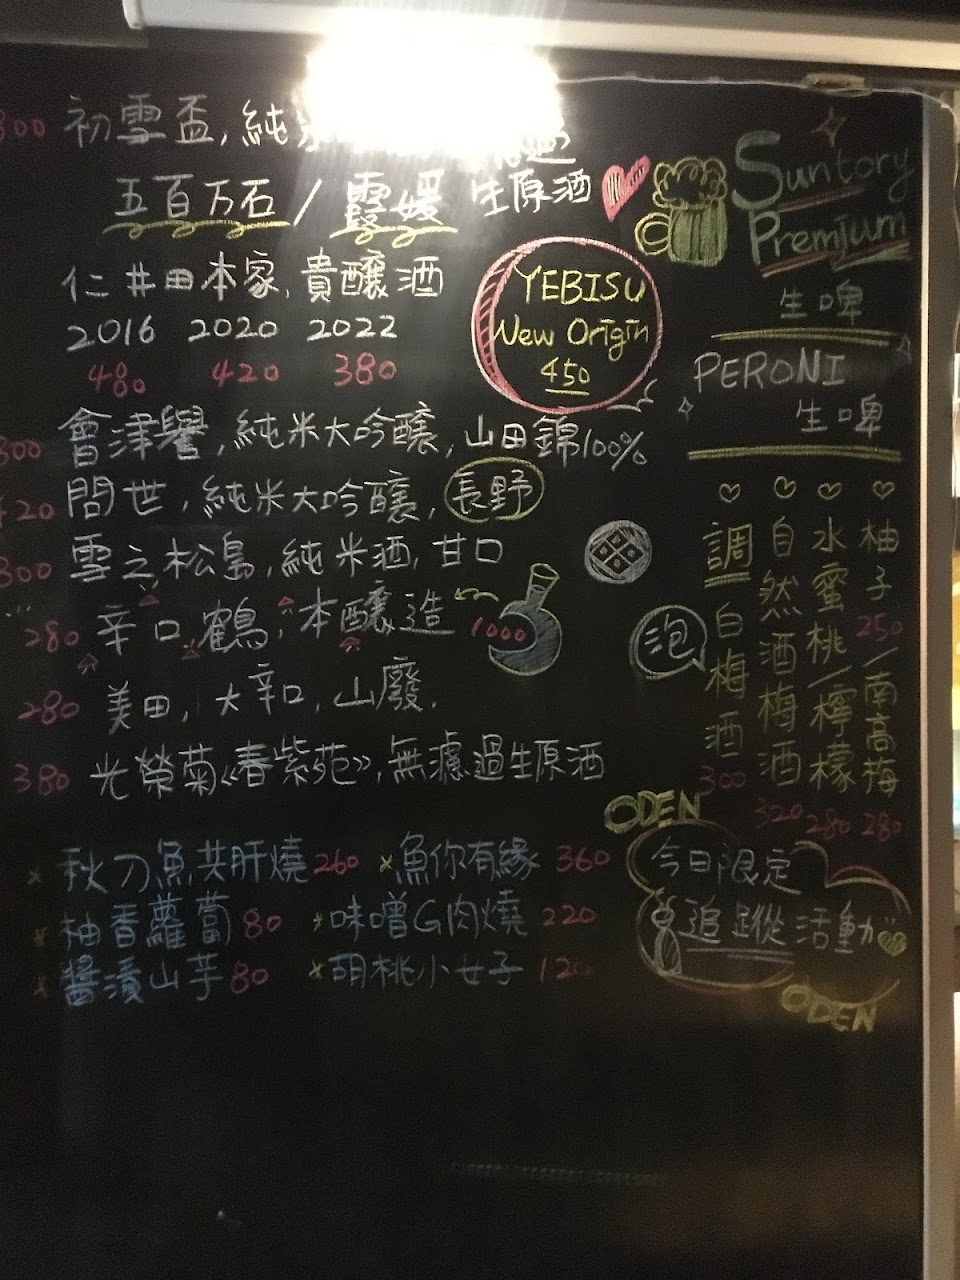 300 初雪盃,純
五百万石/露媛 生原酒
仁井田本家,貴釀酒
2016 2020 2022
480 420 380
300 會津譽,純米大吟釀,山田錦100%
420 問世,純米大吟釀,長野
300 雪之松島,純米酒,甘口
280 辛口鶴,本釀造 1000
280 美田,大辛口,山廢.
380 光榮菊《春紫苑》,無濾過生原酒
×秋刀魚共肝燒260 ×魚你有緣 360
×柚香蘿蔔80 ×味噌G肉燒 220
×醬漬山芋80 ×胡桃小女子 120
YEBISU
New Origin
450
Suntory
Premium
生啤
PERONI
生啤
泡
柚子250/南高梅280
水蜜桃/檸檬280
自然酒梅酒320
調白梅酒300
ODEN
今日限定
追蹤活動
ODEN